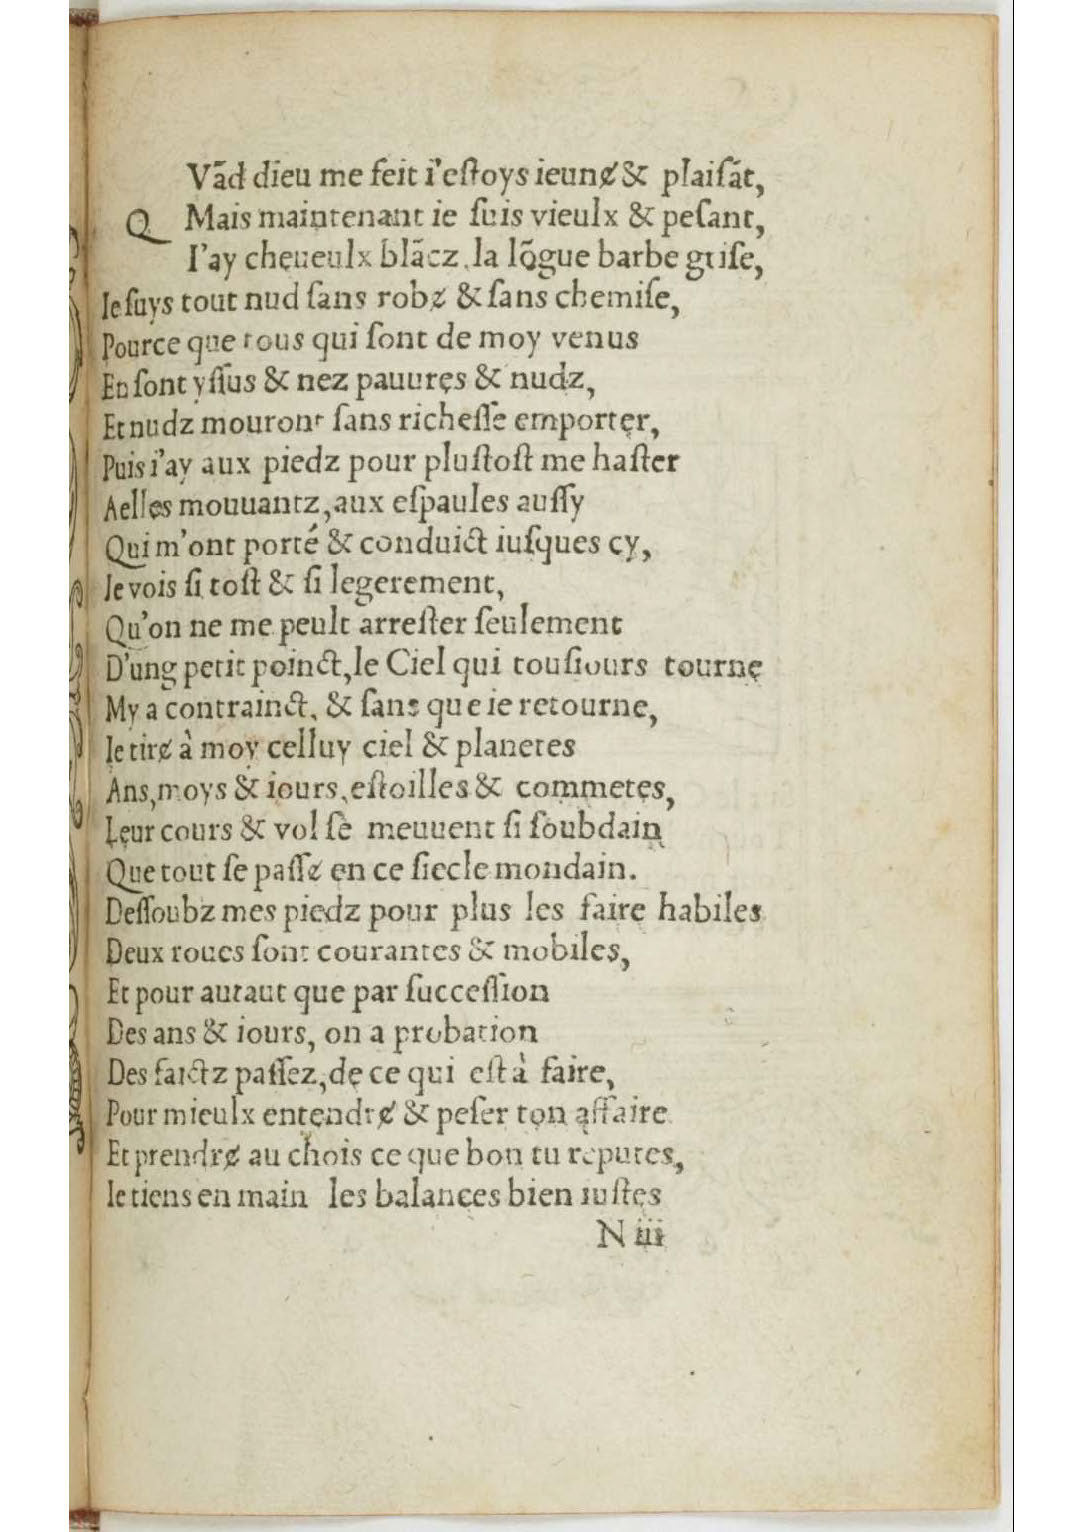 Vãd dieu me feit i'eſtoys ieunɇ & plaiſãt,
Q Mais maintenant ie ſuis vieulx & peſant,
I'ay cheueulx blãcz, la lõgue barbe griſe,
Ie ſuys tout nud ſans robɇ & ſans chemiſe,
Pource que tous qui ſont de moy venus
En ſont yſſus & nez pauures & nudz,
Et nudz mouront ſans richeſſe emporter,
Puis i'ay aux piedz pour pluſtoſt me haſter
Aelles mouuantz, aux eſpaules auſſy
Qui m'ont porté & conduict iuſques cy,
Ie vois ſi toſt & ſi legerement,
Qu'on ne me peult arreſter ſeulement
D'ung petit poinct, le Ciel qui touſiours tourne
My a contrainct, & ſans que ie retourne,
Ie tirɇ à moy celluy ciel & planetes
Ans, moys & iours, eſtoilles & commetes,
Leur cours & vol ſe meuuent ſi ſoubdain
Que tout ſe paſſɇ en ce ſiecle mondain.
Deſſoubz mes piedz pour plus les faire habiles
Deux roues ſont courantes & mobiles,
Et pour autaut que par ſucceſſion
Des ans & iours, on a probation
Des faictz paſſez, de ce qui eſt à faire,
Pour mieulx entendrɇ & peſer ton affaire
Et prendrɇ au chois ce que bon tu reputes,
Ie tiens en main les balances bien iuſtes
N iii